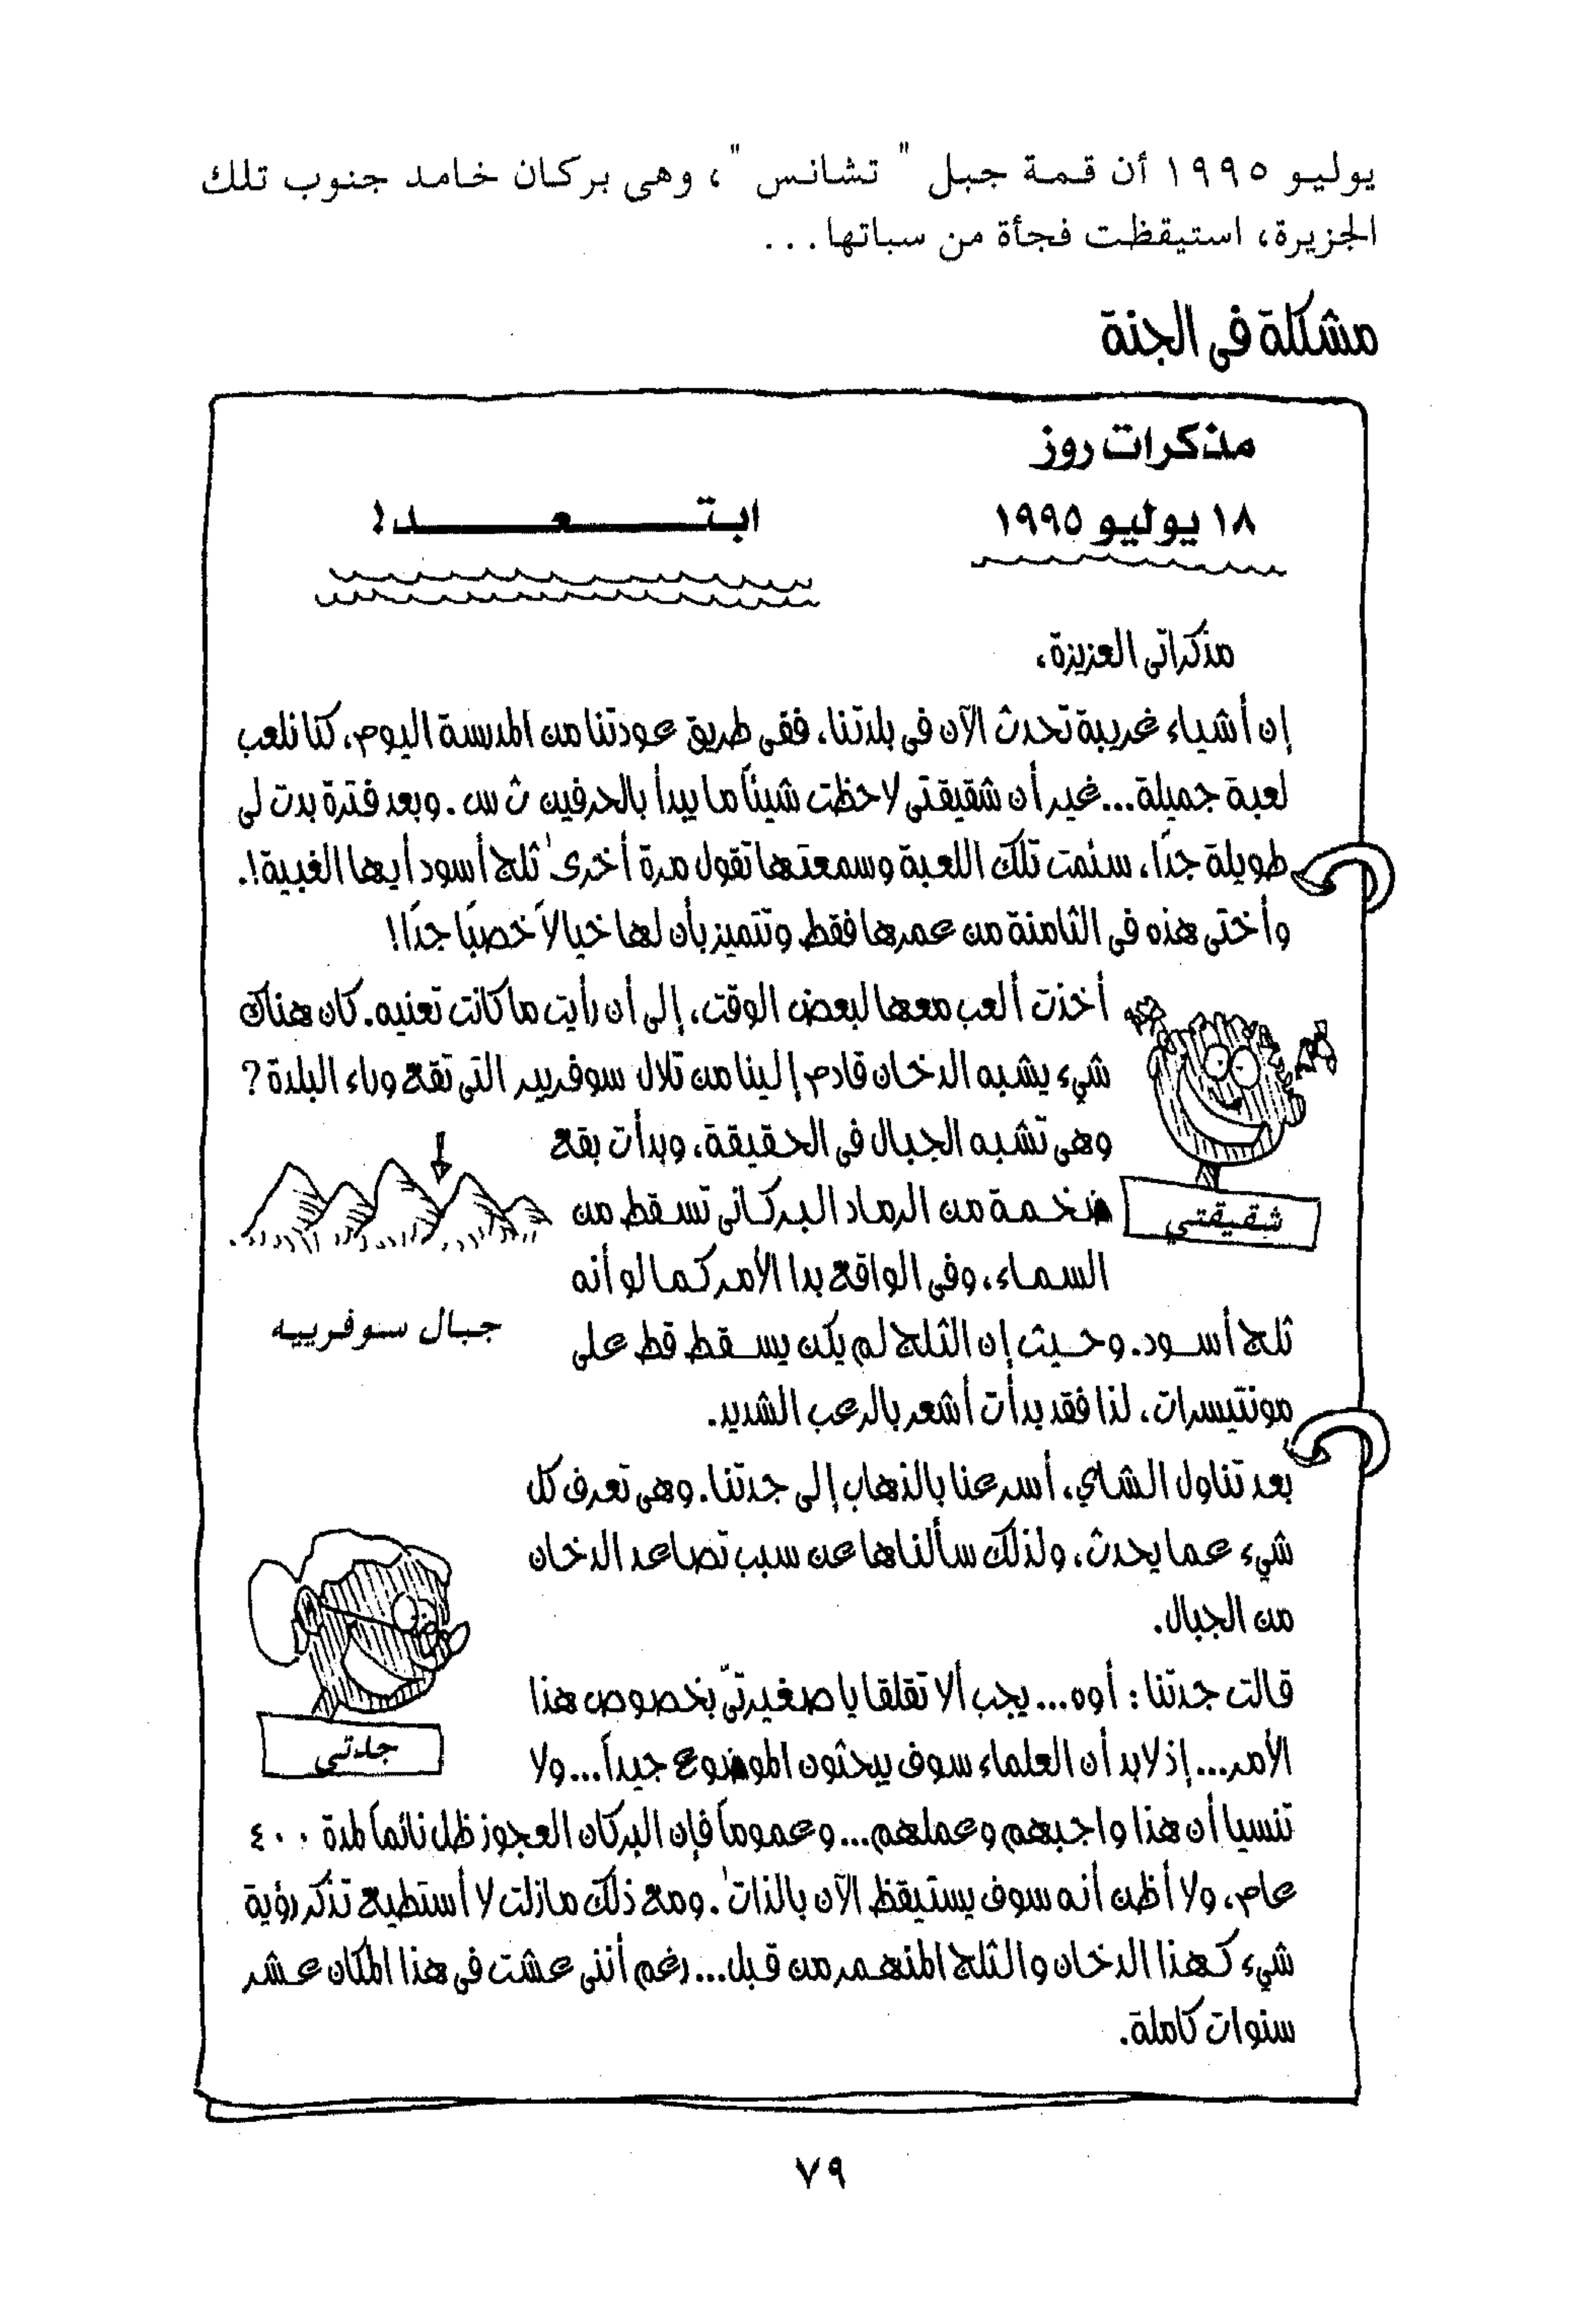 يوليو ١٩٩٥ أن قمة جبل " تشانس "، وهى بركان خامد جنوب تلك
الجزيرة، استيقظت فجأة من سباتها...
مشكلة فى الجنة
مذكرات روز
١٨ يوليو ١٩٩٥
ابتــــعــــد!
مذكراتى العزيزة،
إن أشياء غريبة تحدث الآن فى بلدتنا، ففى طريق عودتنا من المدرسة اليوم، كنا نلعب
لعبة جميلة... غير أن شقيقتى لاحظت شيئاً ما يبدأ بالحرفين ث س. وبعد فترة بدت لى
طويلة جدًا، سئمت تلك اللعبة وسمعتها تقول مرة أخرى' ثلج أسود أيها الغبية!.
وأختى هذه فى الثامنة من عمرها فقط وتتميز بأن لها خيالاً خصبًا جدًا!
أخذت ألعب معها لبعض الوقت، إلى أن رأيت ما كانت تعنيه. كان هناك
شيء يشبه الدخان قادم إلينا من تلال سوفريير التى تقع وراء البلدة؟
وهى تشبه الجبال فى الحقيقة، وبدأت بقع
ضخمة من الرماد البركانى تسقط من
السماء، وفى الواقع بدا الأمر كما لو أنه
ثلج أسود. وحيث إن الثلج لم يكن يسقط قط على
مونتيسرات، لذا فقد بدأت أشعر بالرعب الشديد.
شقيقتي
جبال سوفرييه
بعد تناول الشاي، أسرعنا بالذهاب إلى جدتنا. وهى تعرف كل
شيء عما يحدث، ولذلك سألناها عن سبب تصاعد الدخان
من الجبال.
قالت جدتنا: أوه... يجب ألا تقلقا يا صغيرتىّ بخصوص هذا
الأمر... إذ لابد أن العلماء سوف يبحثون الموضوع جيداً... ولا
تنسيا أن هذا واجبهم وعملهم... وعموماً فإن البركان العجوز ظل نائماً لمدة ٤٠٠
عام، ولا أظن أنه سوف يستيقظ الآن بالذات'. ومع ذلك مازلت لا أستطيع تذكر رؤية
شيء كهذا الدخان والثلج المنهمر من قبل... رغم أننى عشت فى هذا المكان عشر
سنوات كاملة.
جدتي
٧٩